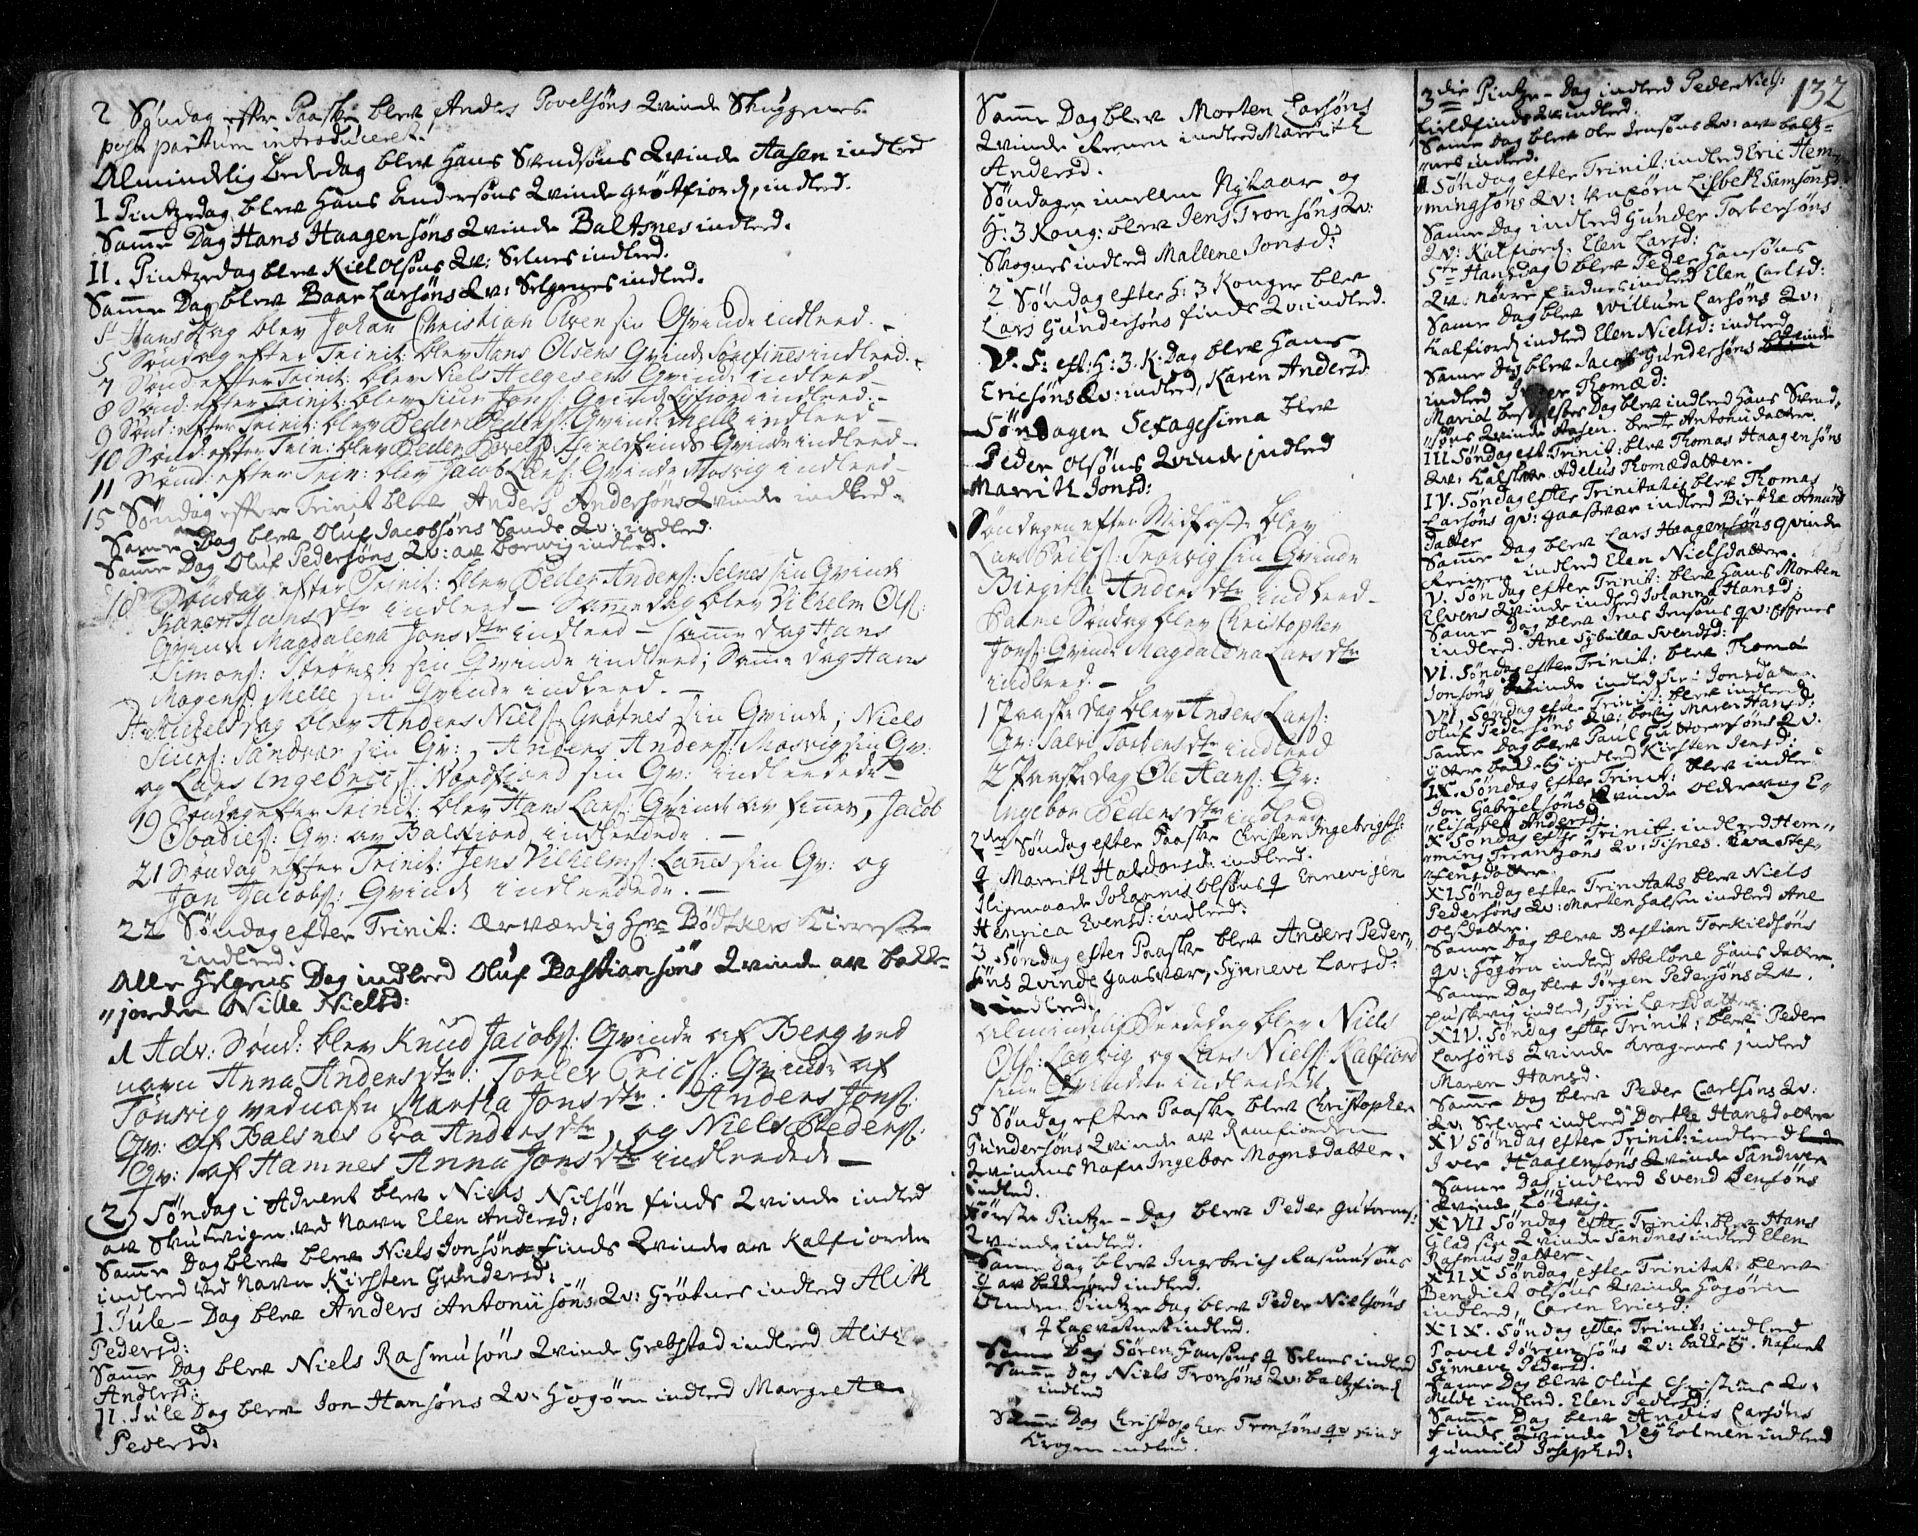 2 Søndag efter Paaske blev Anders Povelsøns Qvinde Skuggenes
post partum introduceret.
Almindelig Bededag blev Hans Svendsøns Qvinde Aasen indled
I Pintzedag blev Hans Andersøns Qvinde Grøtfiord, indled.
Samme Dag Hans Haagensøns Qvinde Baltsnes indled.
II. Pintzedag blev Kiel Olsøns Qv: Selnes indled.
Samme Dag blev Baar Larsøns Qv: Selgenes indled.
St Hans Dag blev Johan Christian Even sin Qvinde indleed.
5 Søndag efter Trinit: blev Hans Olsens Qvinde indleed.
7 Sønd: efter Trinit: blev Niels Helgesens Qvinde indleed
8 Sønd: efter Trinit: blev Siur Jons: Qvinde indleed.
9 Sønd: efter Trinit: blev Peder Peders: Qvinde Melle indleed
10 Sønd: efter Trin: blev Peder Povels: Fieldfinds Qvinde indleed
11 Sønd: efter Trin: blev Jacob Lars: Qvinde Mosvig indleed
15 Søndag efter Trinit blev Anders Andersøns Qvinde indleed
Samme Dag blev Oluf Jacobsøns Sands Qv: indled.
Samme Dag Oluf Pedersøns Qv: av indled.
18 Søndag efter Trinit: blev Peder Anders: Selnes sin Qvinde
Karen Hans dtr indleed - Samme dag blev Vilhelm Ols:
Qvinde Magdalena Jons dtr indleed - samme dag Hans
Simons: Strømen sin Qvinde indleed; Samme dag Hans
Mogens: Melle sin Qvinde indleed.
St Michels dag blev Anders Niels: Grøtnes sin Qvinde; Niels
Siurs: Sandvær sin Qv:, Anders Anders: Mosvig sin Qv:
og Lars Ingebricts: Nordfiord sin Qv: indleedede
19 Søndag efter Trinit: blev Hans Lars: Qvinde av Finnes, Jacob
Obadies: Qv: av Balsfiord indleedede.
21 Søndag efter Trinit: Jens Vilhelms: Lanes sin Qv: og
Jon Jacobs: Qvinde indleedede.
22 Søndag efter Trinit: Ærværdig Hr Bødtkers Kiereste
indleed.
Alle Helgens Dag indleed Oluf Bastiansøns Qvinde av Balds-
"jorden Nille Nielsd:
1 Adv: Sønd: blev Knud Jacobs: Qvinde af Berg ved
navn Anna Anders dtr: Torlev Erics: Qvinde af
Tønsvig ved nafn Martha Jons dtr: Anders Jons:
Qv: af Balsnes Eva Anders dtr, og Niels Peders:
Qv: af Hamnes Anna Jons dtr indleedede
2 Søndag i Advent blev Niels Nilsøn Finds Qvinde indled
av Skutvigen ved Navn Elen Andersd:
Samme Dag blev blev Niels Jonsøns Finds Qvinde av Kalfiorden
indleed ved Navn Kirsten Gundersd:
I Jule-Dag blev Anders Antoniisøns Qv: Grøtnes indled Alith
Pedersd:
Samme Dag blev Niels Rasmusøns Qvinde Grebstad indleed Alith
Andersd:
II. Jule Dag blev Jon Hansøns Qv: Høgøen indled Margrete
Pedersd:
Samme Dag blev Morten Larsøns
Qvinde Reenen indled Marrith
Andersd.
Søndagen imellem Nytaar og
H: 3 Kong: blev Jens Tronsøns Qv:
Skognes indled Mallene Jonsd:
2 Søndag efter H: 3 Konger blev
Lars Gundersøns Finds Qv: indled.
V. S: eft: H: 3. K. Dag blev Hans
Ericsøns Qv: indled, Karen Andersd
Søndagen Sexagesima blev
Peder Olsøns Qvinde indled
Marrith Jonsd:
Søndagen efter Midfaste blev
Lars Erics: Tronvig sin Qvinde
Birgitha Anders dtr indleed
Palme Søndag blev Christopher
Jons: Qvinde Magdalena Lars dtr
indleed.
1 Paaske dag blev Anders Lars:
Qv: Torbers dtr indleed
2 Paaske dag Ole Hans: Qv:
Ingebor Peders dtr indleed
2den Søndag efter Paaske Christen Ingebrigts:
Q Marrith Haldorsd: indled.
Iligemaade Johannes Olsøns Q Ennevigen
Henrica Evensd: indled:
3. Søndag efter Paaske blev Anders Peder-
søns Qvinde Gaasvær, Synneve Larsd:
indled.
Almindelig Beededag blev Niels
Ols: Løgvig og Lars Niels: Kalfiord
sine Qvinder indleedede
5 Søndag efter Paaske blev Christopher
Gundersøns Qvinde av Ramfiorden
Qvindens Nafn Ingebor Mognsdatter.
indled.
Første Pintze-Dag blev Peder Gutorms:
Qvinde indled.
Samme Dag blev Ingebrich Rasmusøns
Q av indled.
Anden Pintze Dag blev Peder Nielsøns
Q Laxvatnet indled.
Samme Dag Søren Hansøns Q Selnes indled
Samme Dag Niels Tronsøns Qv: Baltzfiord
indled
Samme Dag Christopher Tronsøns Qv Find
Kragen indled.
132
3die Pintze-Dag indled Peder Niels:
Fieldfinds Qv indled.
Samme Dag blev Ole Jensøns Qv: av Balts-
"nes indled.
Søndag efter Trinit: indled Eric Hem-
"mingsøns Qv: Lisbeth Samsonsd
Samme Dag indled Gunder Torbersøns
Qv: Kalfiord. Elen Larsd:
St Hansdag blev Peder Hansøns
Qv: Nørre Findnes indled Elen Carlsd:
Samme Dag blev Willum Larsøns Qv:
Kalfiord indled Elen Nielsd: indled
Samme Dag blev Jacob Gundersøns
indled Thomæd:
Mariæ Dag blev indled Hans Svend-
"søns Qvinde Aasen. Berte Antonidatter.
III Søndag eft: Trinit: blev Thomas Haagensøns
Qv: Adelus Thomædatter.
IV. Søndag efter Trinitatis blev Thomas
Larsøns Qv: Gaasvær indled Birthe Amund
datter
Samme Dag blev Lars Haagensøns Qvinde
Reinen indled Elen Nielsdatter.
V. Søndag efter Trinit: blev Hans Morten
Elvens Qvinde indled Johanna Hansd:
Samme Dag blev Jens Jensøns Qv:
indled. Ane Sybilla Svendsd:
VI. Søndag efter Trinit: blev Thomæ
Jonsøns Qvinde indled Jonsda
VII. Søndag efter Trinit: blev indleed
Oluf Pedersøns Qv: Maren Hansd:
Samme Dag blev Paul Guttormsøns Qv:
indled Kirsten Jensd:
IX. Søndag efter Trinit: blev indle
Jon Gabrielsøns Qvinde Oldervig E-
"lisabet Andersd.
X Søndag efter Trinit indleed Hem-
"ming Frantzøns Qv: Tisnes. Eva Stef-
"fensdatter.
XI Søndag efter Trinitatis blev Niels
Pedersøns Qv: Mortenhalsen indled Ane
Olsdatter.
Samme Dag blev Bastian Torkildsøns
Qv: Høgøen indled Abelone Hansdatter.
Samme Dag blev Jørgen Pedersøns Qv.
indled, Larsdatter.
XIV. Søndag efter Trinit: blev Peder
Larsøns Qvinde Kragenes indled
Maren Hansd.
Samme Dag blev Peder Carlsøns Qv:
Selnes indled Dorthe Hansdatter
XV Søndag efter Trinit: indleed
Iver Haagensøns Qvinde Sandvær
Samme Dag indled Svend Bensøns
Qvinde
XVII Søndag efter Trinit: blev Hans
Glad sin Qvinde Sandnes indled Elen
Rasmusdatter.
XIIX Søndag efter Trinitat: blev
Bendict Olsøns Qvinde Høgøen
indled, Caren Ericsd:
XIX. Søndag efter Trinit: indleed
Povel Jørgensøns Qv: Nafnet
Synneve Pedersd.
Samme Dag blev Oluf Qv:
Melde indleed. Elen Pedersd:
Samme Dag blev Andis Larsøns
Finds Qvinde Vegholmen indled
Gunnild Josephsd: